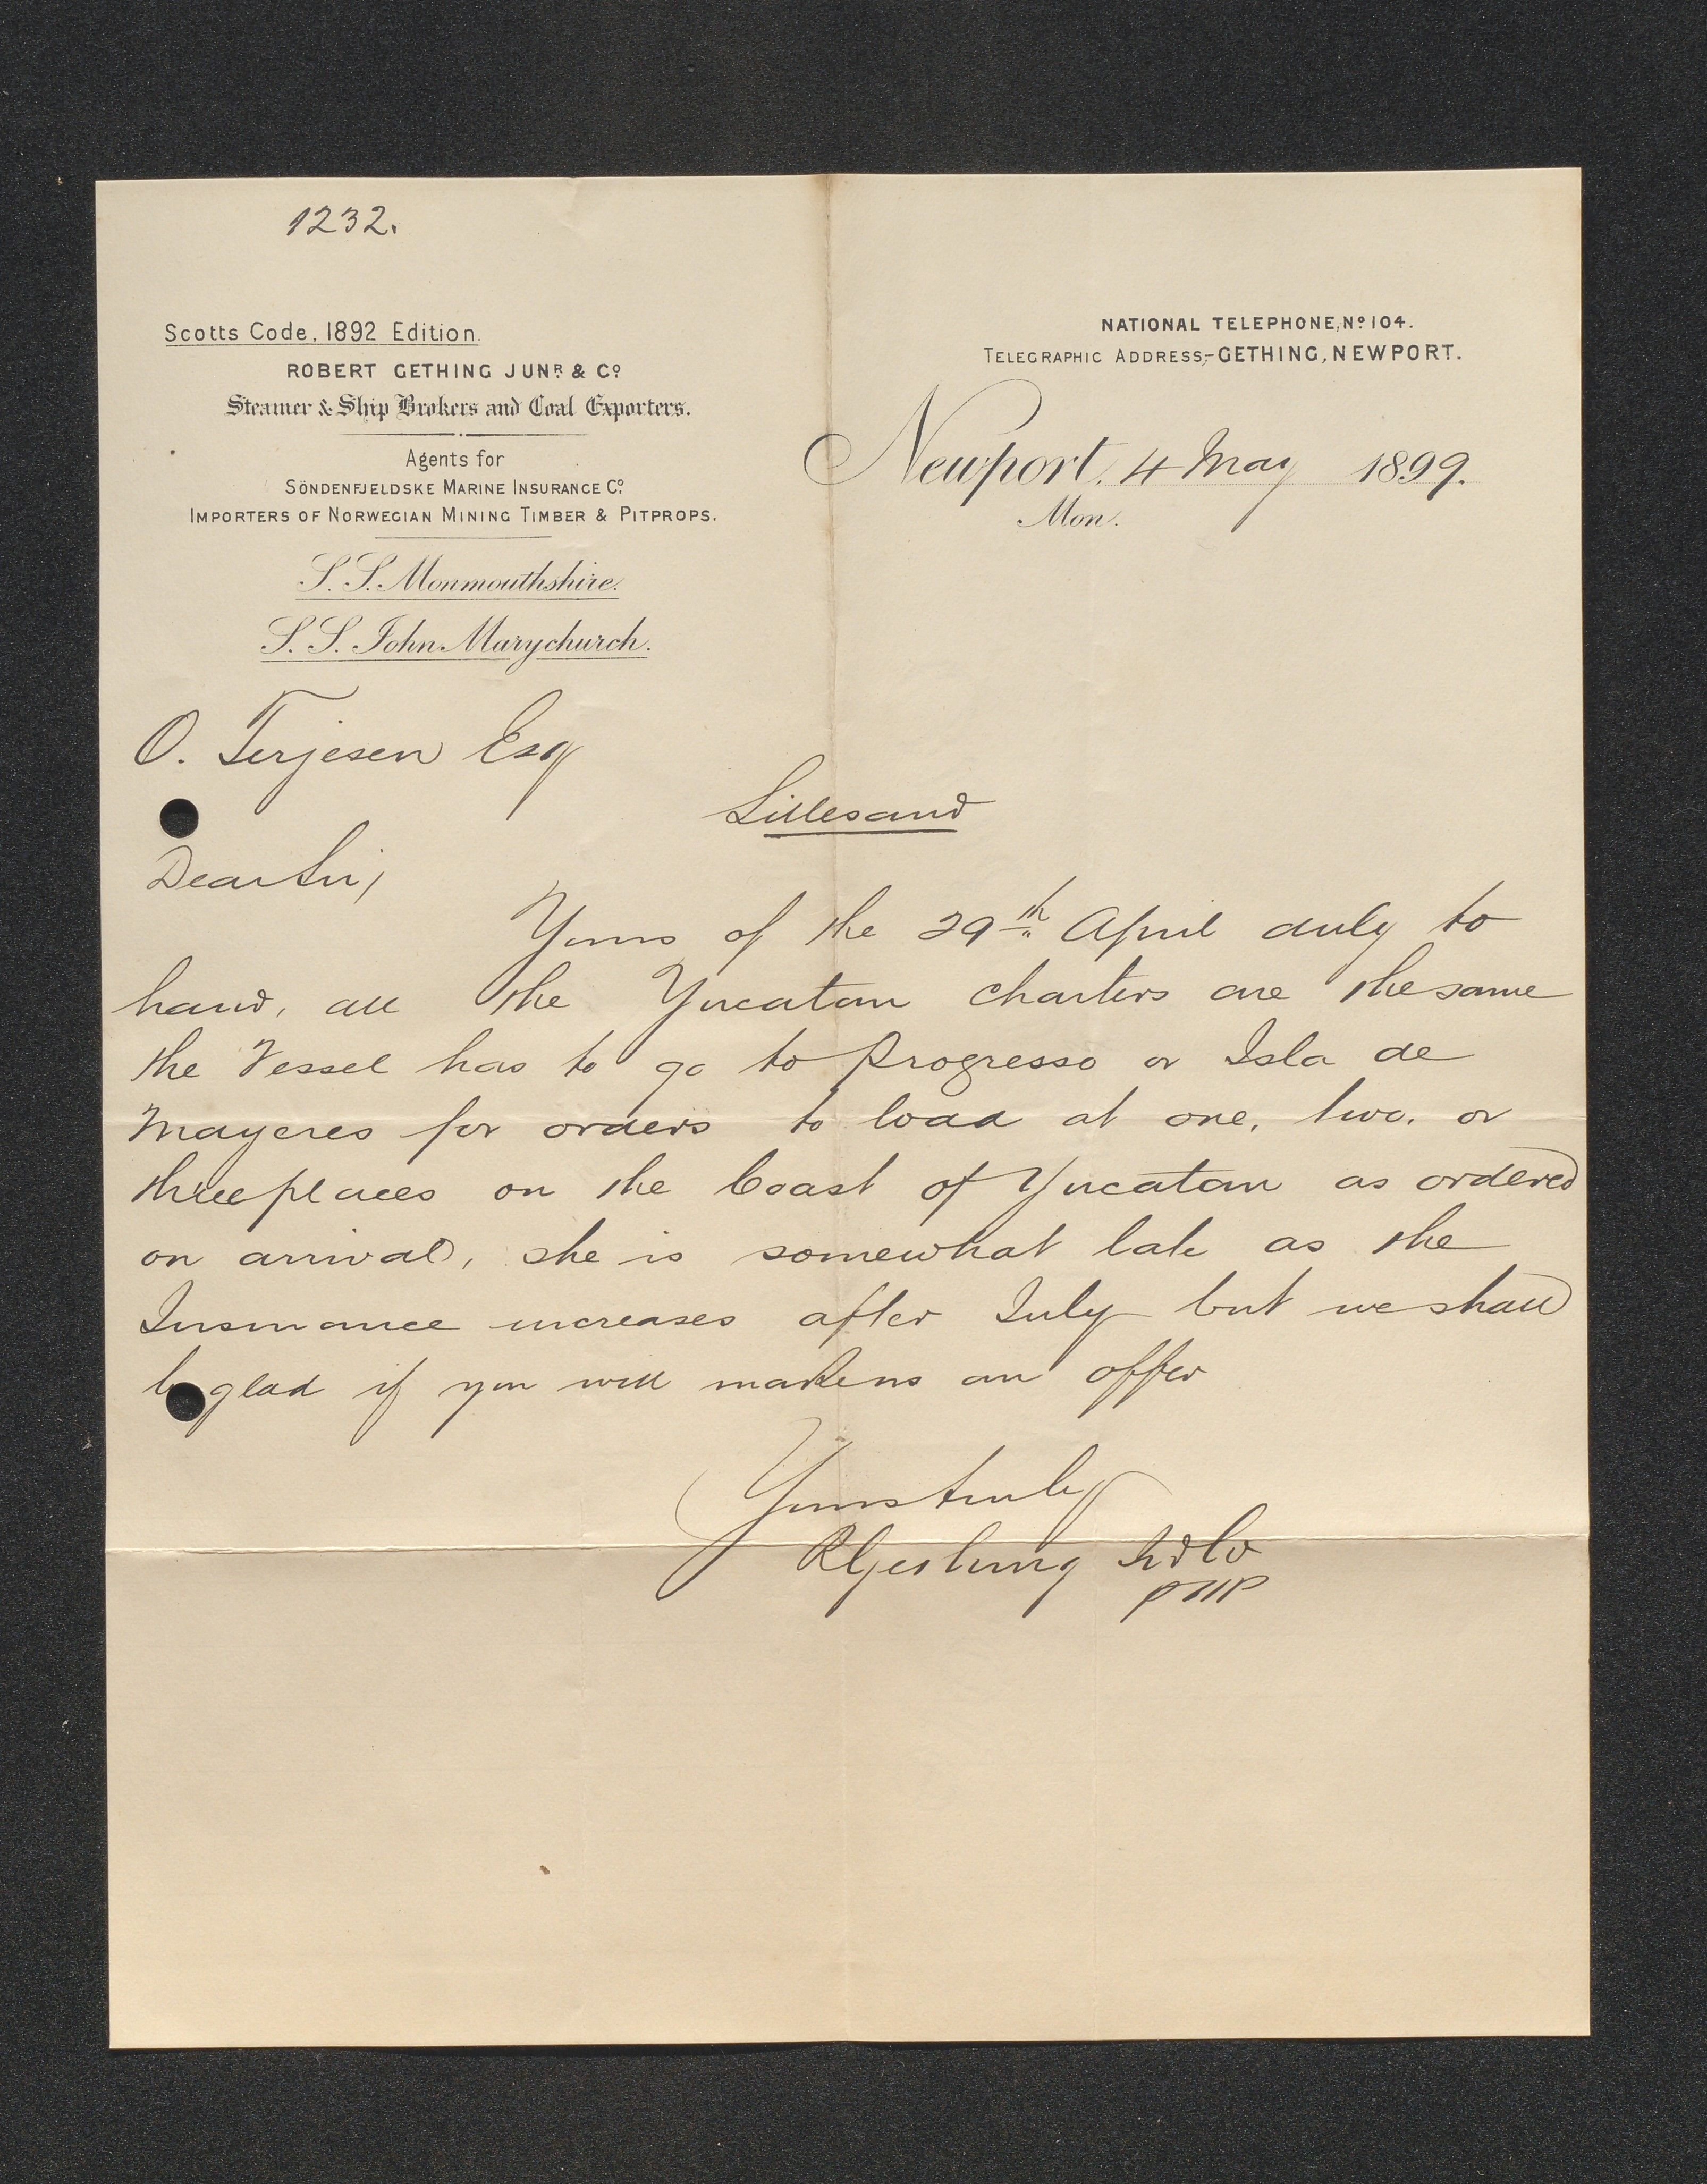 1232.
Scotts Code, 1892 Edition.
ROBERT GETHING JUNR & Co
Steamer & Ship Brokers and Coal Exporters.
Agents for
SÖNDENFJELDSKE MARINE INSURANCE Co.
IMPORTERS OF NORWEGIAN MINING TIMBER & PITPROPS.
S.S. Monmouthshire.
S.S. John Marychurch.
NATIONAL TELEPHONE, No 104.
TELEGRAPHIC ADDRESS,- GETHING, NEWPORT.
Newport, 4 May 1899.
Mon.
O. Terjesen Esq
Lillesand
Dear Sir,
Yours of the 29th April duly to
hand, all the Yucatan charters are the same
the Vessel has to go to Progresso or Isla de
Mayeres for orders to load at one, two, or
three places on the Coast of Yucatan as ordered
on arrival, she is somewhat late as the
Insurance increases after July but we shall
be glad if you will make us an offer
Yours truly
R Gething Jr & Co